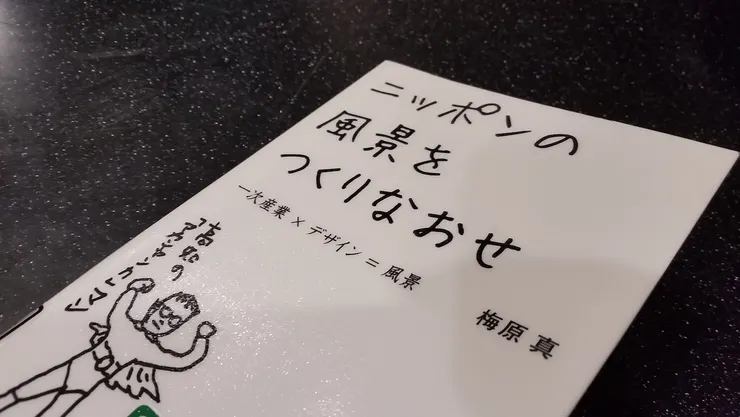 ニッポンの
風景を
つくりなおせ
一次産業×デザイン＝風景
梅原 真
高知の
アカンヤンカマン